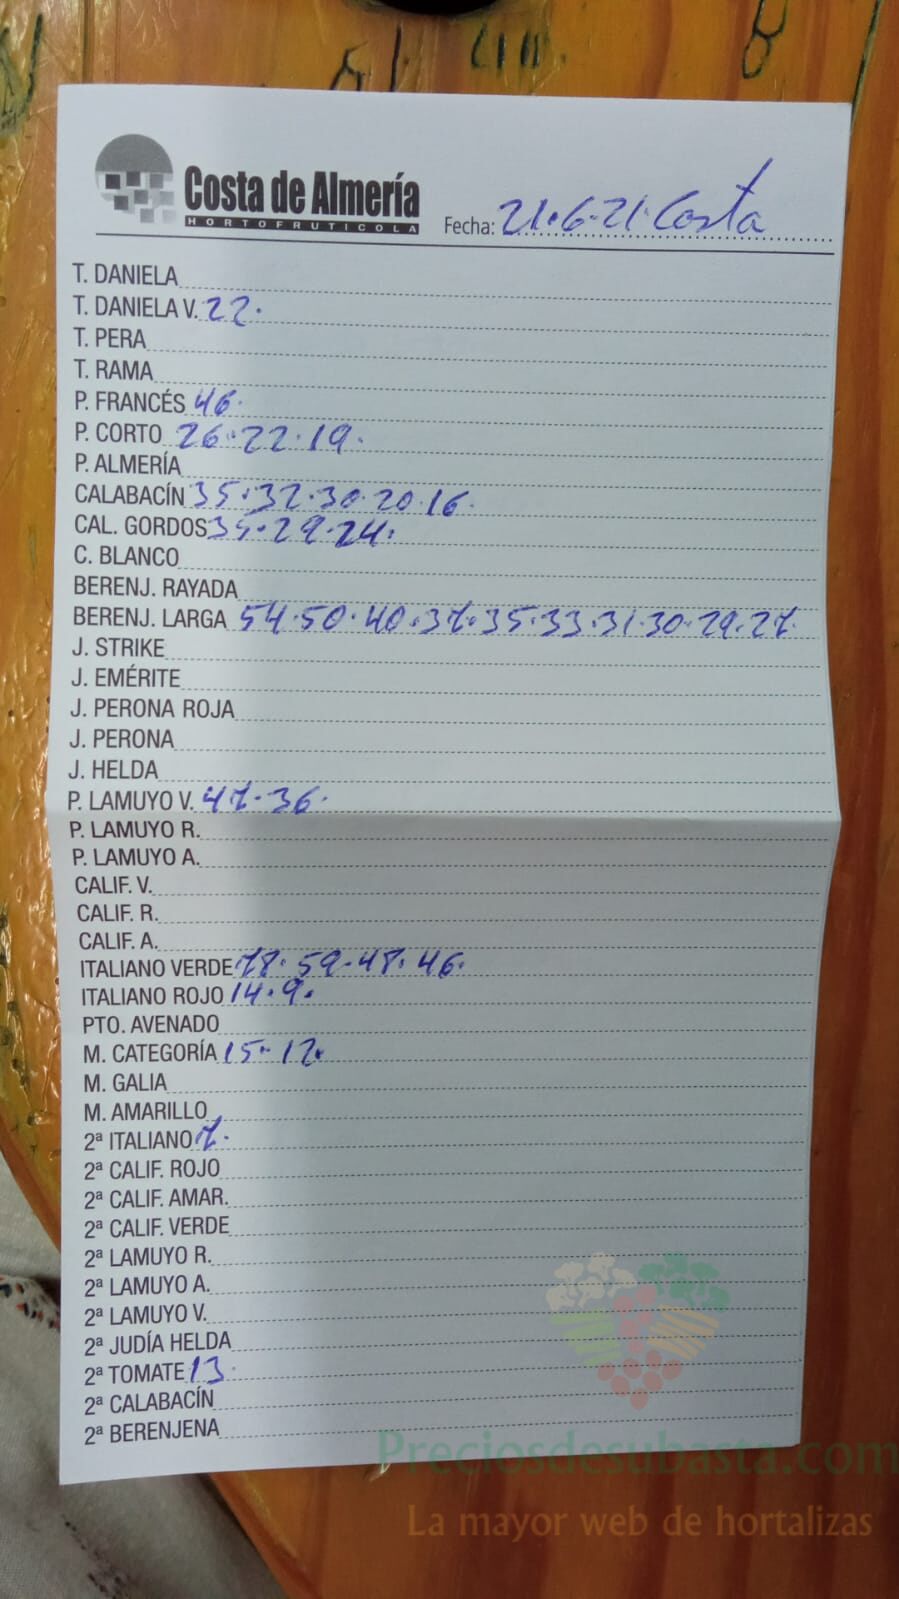 Costa de Almería
HORTOFRUTICOLA
Fecha: 21.6.21. Costa
T. DANIELA
T. DANIELA V. 22.
T. PERA
T. RAMA
P. FRANCÉS 46.
P. CORTO 26.22.19.
P. ALMERÍA
CALABACÍN 35.32.30.20.16.
CAL. GORDOS 35.29.24.
C. BLANCO
BERENJ. RAYADA
BERENJ. LARGA 54.50.40.37.35.33.31.30.29.27.
J. STRIKE
J. EMÉRITE
J. PERONA ROJA
J. PERONA
J. HELDA
P. LAMUYO V. 47.36.
P. LAMUYO R.
P. LAMUYO A.
CALIF. V.
CALIF. R.
CALIF. A.
ITALIANO VERDE 78.59.48.46.
ITALIANO ROJO 14.9.
PTO. AVENADO
M. CATEGORÍA 15.12.
M. GALIA
M. AMARILLO
2ª ITALIANO 7.
2ª CALIF. ROJO
2ª CALIF. AMAR.
2ª CALIF. VERDE
2ª LAMUYO R.
2ª LAMUYO A.
2ª LAMUYO V.
2ª JUDÍA HELDA
2ª TOMATE 13.
2ª CALABACÍN
2ª BERENJENA
Preciosdesubasta.com
La mayor web de hortalizas